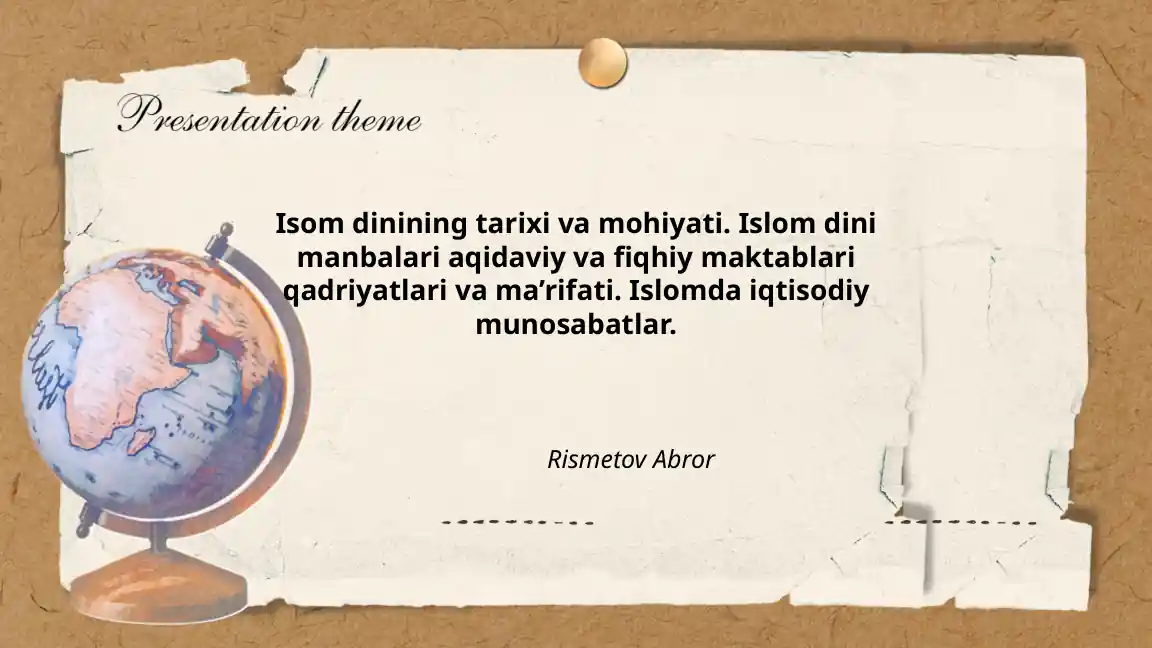 Presentation theme
Isom dinining tarixi va mohiyati. Islom dini
manbalari aqidaviy va fiqhiy maktablari
qadriyatlari va ma’rifati. Islomda iqtisodiy
munosabatlar.
Rismetov Abror